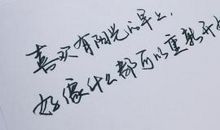 喜欢有阳光的早上，
好像什么都可以重新开